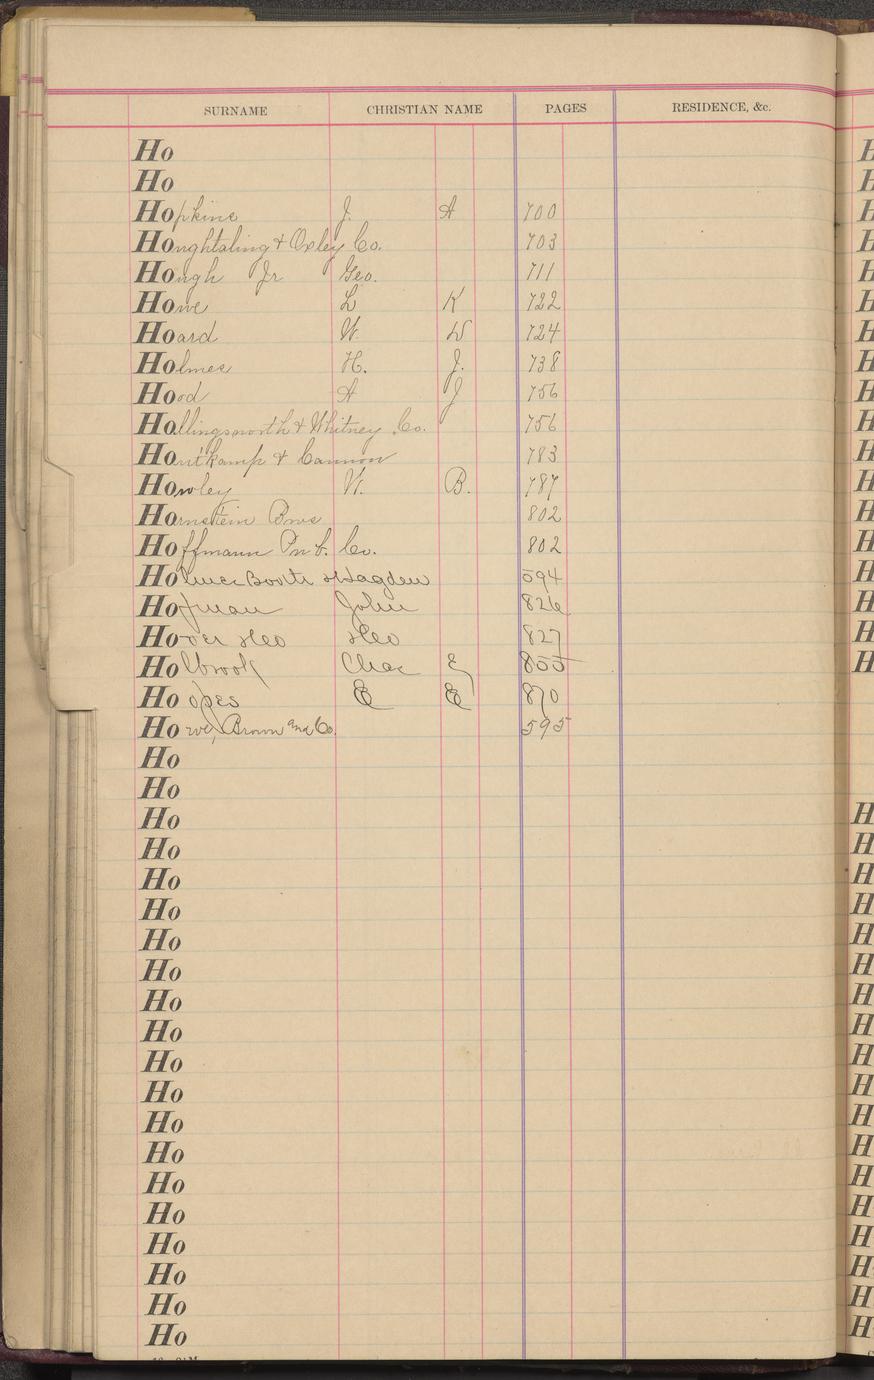 SURNAME CHRISTIAN NAME PAGES RESIDENCE, &c.
Ho
Ho
Hopkins J. A 700
Houghtaling & Oxley Co. 703
Hough Jr Geo. 711
Howe L K 722
Hoard W. W 724
Holmes H. J. 738
Hood A J 756
Hollingsworth & Whitney Co. 756
& Cannon 783
Howley W. B. 787
Hornstein Bros 802
Hoffmann Co. 802
Holmes Booth & Hayden 594
Hofman John 826
Hover Geo Geo 827
Holbrook Chas E 855
Hoopes E E 870
Howe, Brown and Co. 595
Ho
Ho
Ho
Ho
Ho
Ho
Ho
Ho
Ho
Ho
Ho
Ho
Ho
Ho
Ho
Ho
Ho
Ho
Ho
Ho